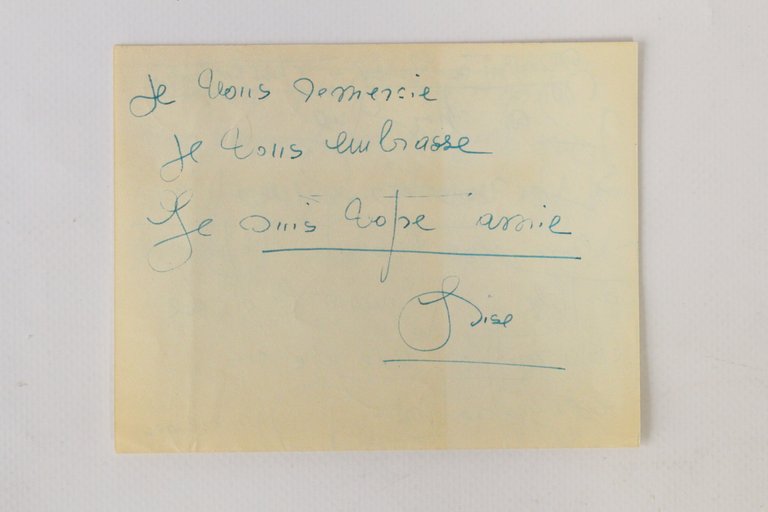 Je vous remercie
Je vous embrasse
Je suis votre amie